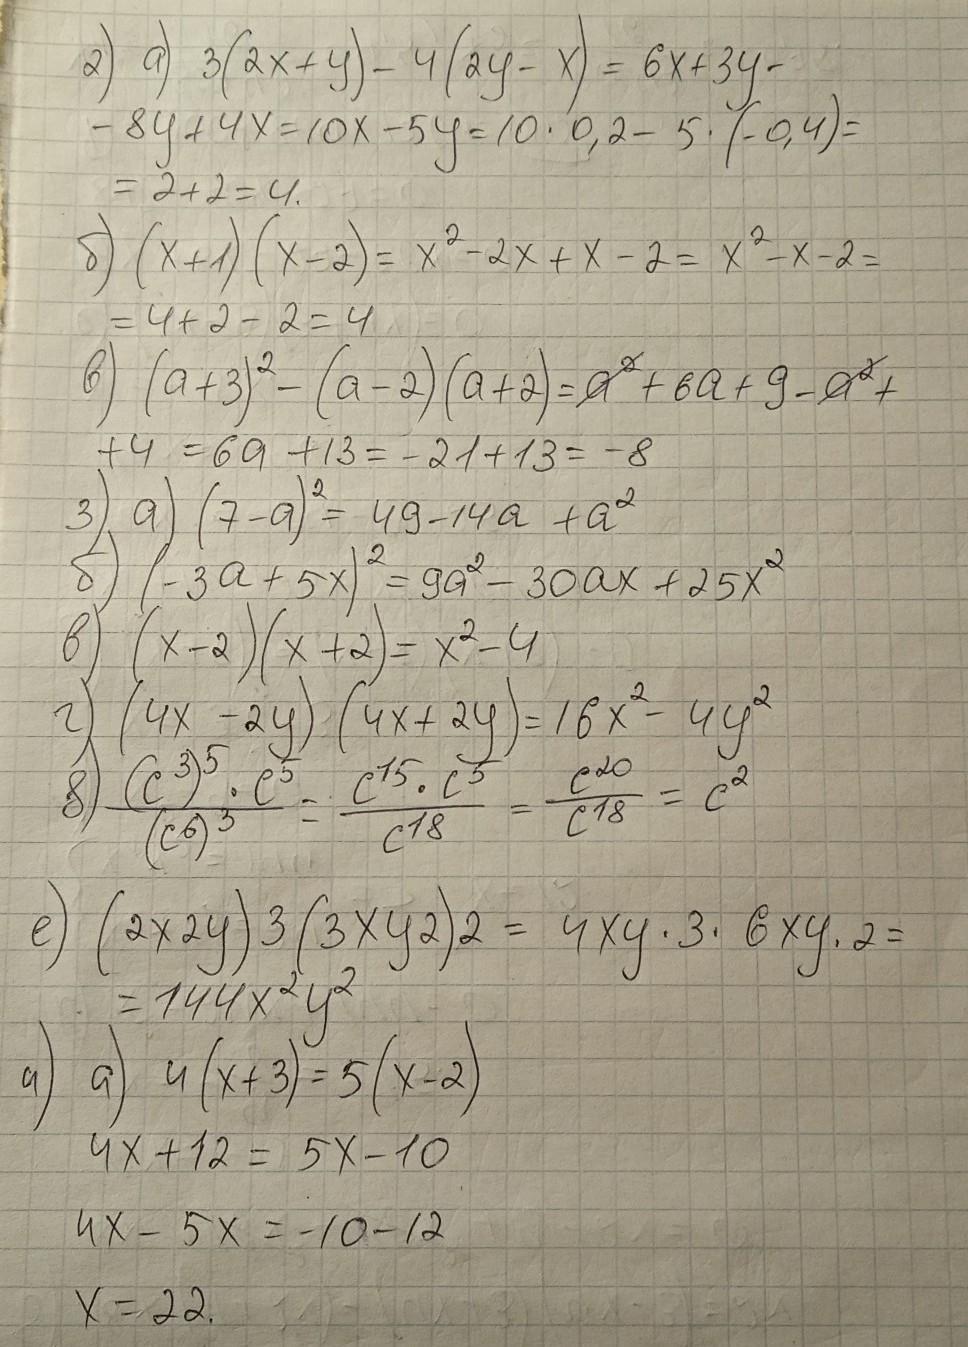 2) а) 3(2x+y)-4(2y-x)=6x+3y-
-8y+4x=10x-5y=10·0,2-5·(-0,4)=
=2+2=4.
б) (x+1)(x-2)=x²-2x+x-2=x²-x-2=
=4+2-2=4
в) (a+3)²-(a-2)(a+2)=a²+6a+9-a²+
+4=6a+13=-21+13=-8
3) а) (7-a)²=49-14a+a²
б) (-3a+5x)²=9a²-30ax+25x²
в) (x-2)(x+2)=x²-4
г) (4x-2y)(4x+2y)=16x²-4y²
д) (c³)⁵·c⁵/(c⁶)³=c¹⁵·c⁵/c¹⁸=c²⁰/c¹⁸=c²
е) (2x2y)3(3xy2)2=4xy·3·6xy·2=
=144x²y²
4) а) 4(x+3)=5(x-2)
4x+12=5x-10
4x-5x=-10-12
x=22.